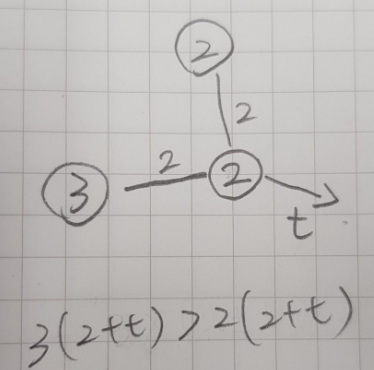 2
2
2
3
2
t
3(2+t) > 2(2+t)